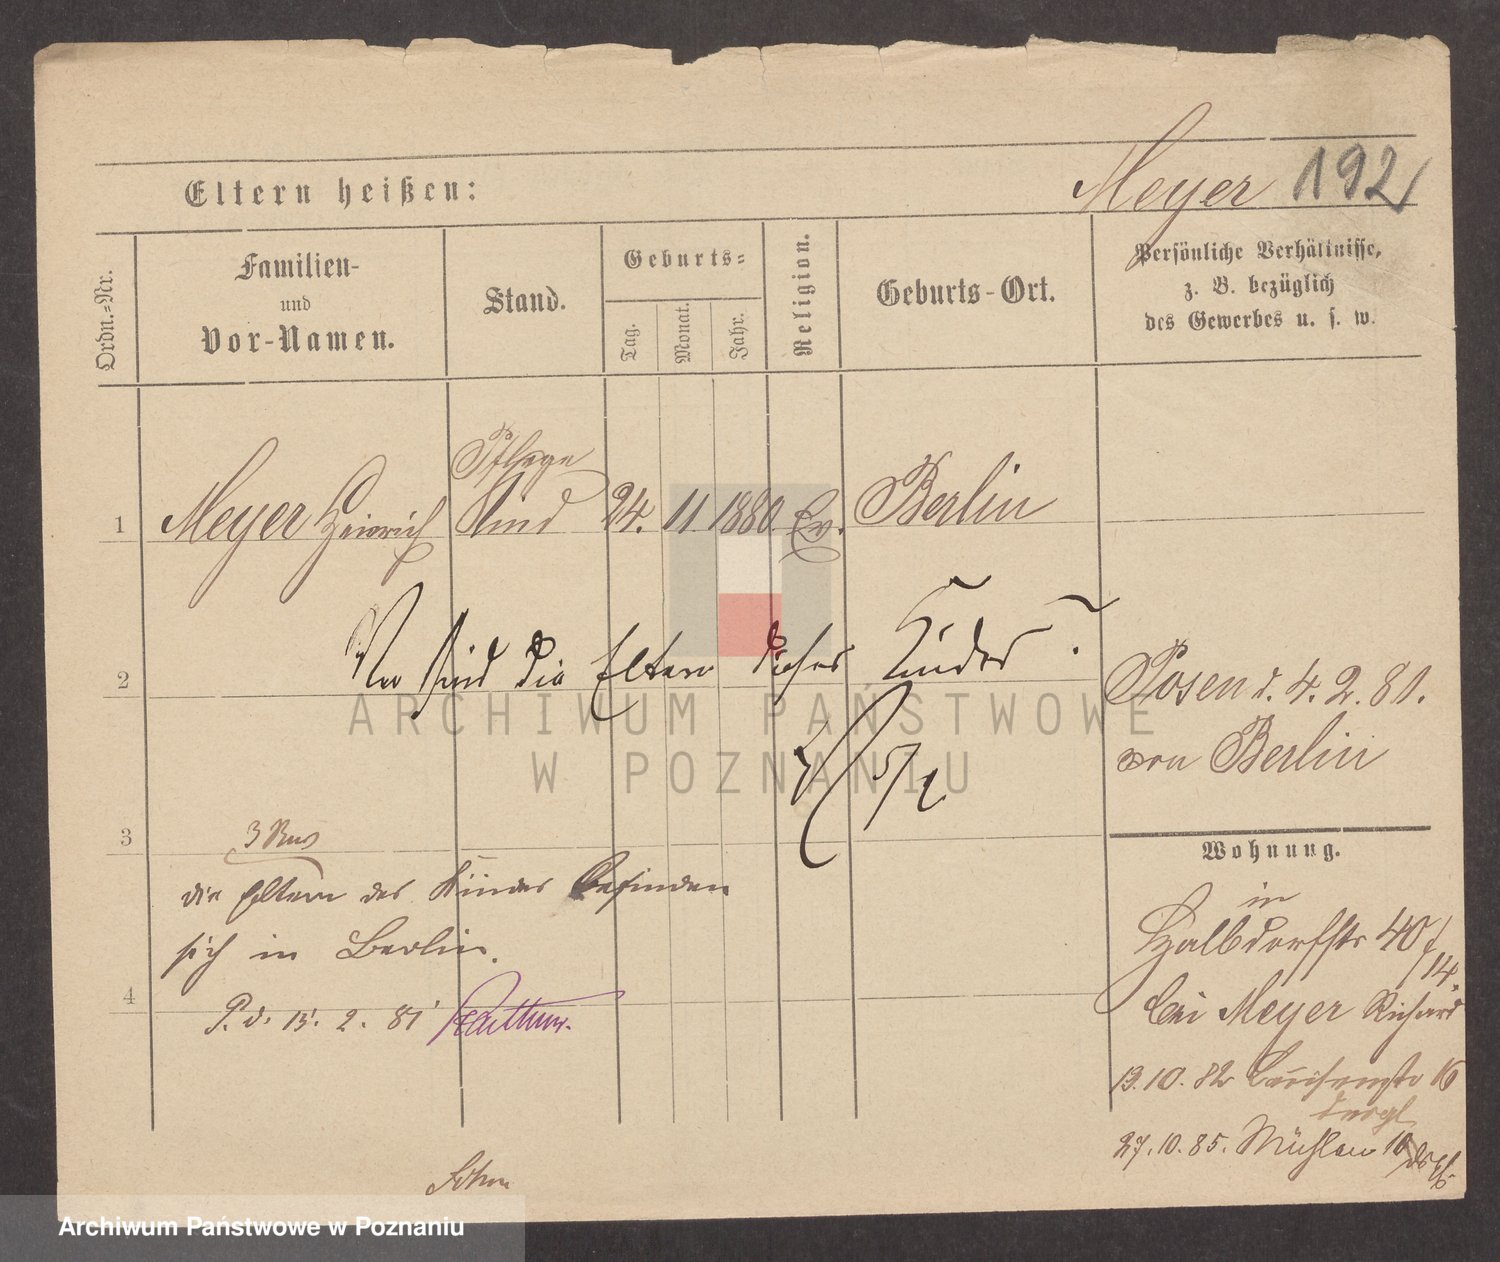 Eltern heißen:
Meyer 192
Ordn.-Nr.
Familien-
und
Vor-Namen.
Stand.
Geburts-
Tag.
Monat.
Jahr.
Religion.
Geburts-Ort.
Persönliche Verhältnisse,
z. B. bezüglich
des Gewerbes u. s. w.
Pflege
1 Meyer Heinrich Kind 24. 11 1880. Ev. Berlin
2 Wo sind die Eltern dieses Kindes?
Posen d. 4. 2. 81.
von Berlin
ARCHIWUM PAŃSTWOWE
W POZNANIU
5/2
3
3 Rev
die Eltern des Kindes befinden
sich in Berlin.
4 P. d. 15. 2. 81
Wohnung.
in
Halbdorfstr 40/14.
bei Meyer Richard
13. 10. 82 Louisenstr 16
dergl
27. 10. 85. Mühlen 10
Archiwum Państwowe w Poznaniu